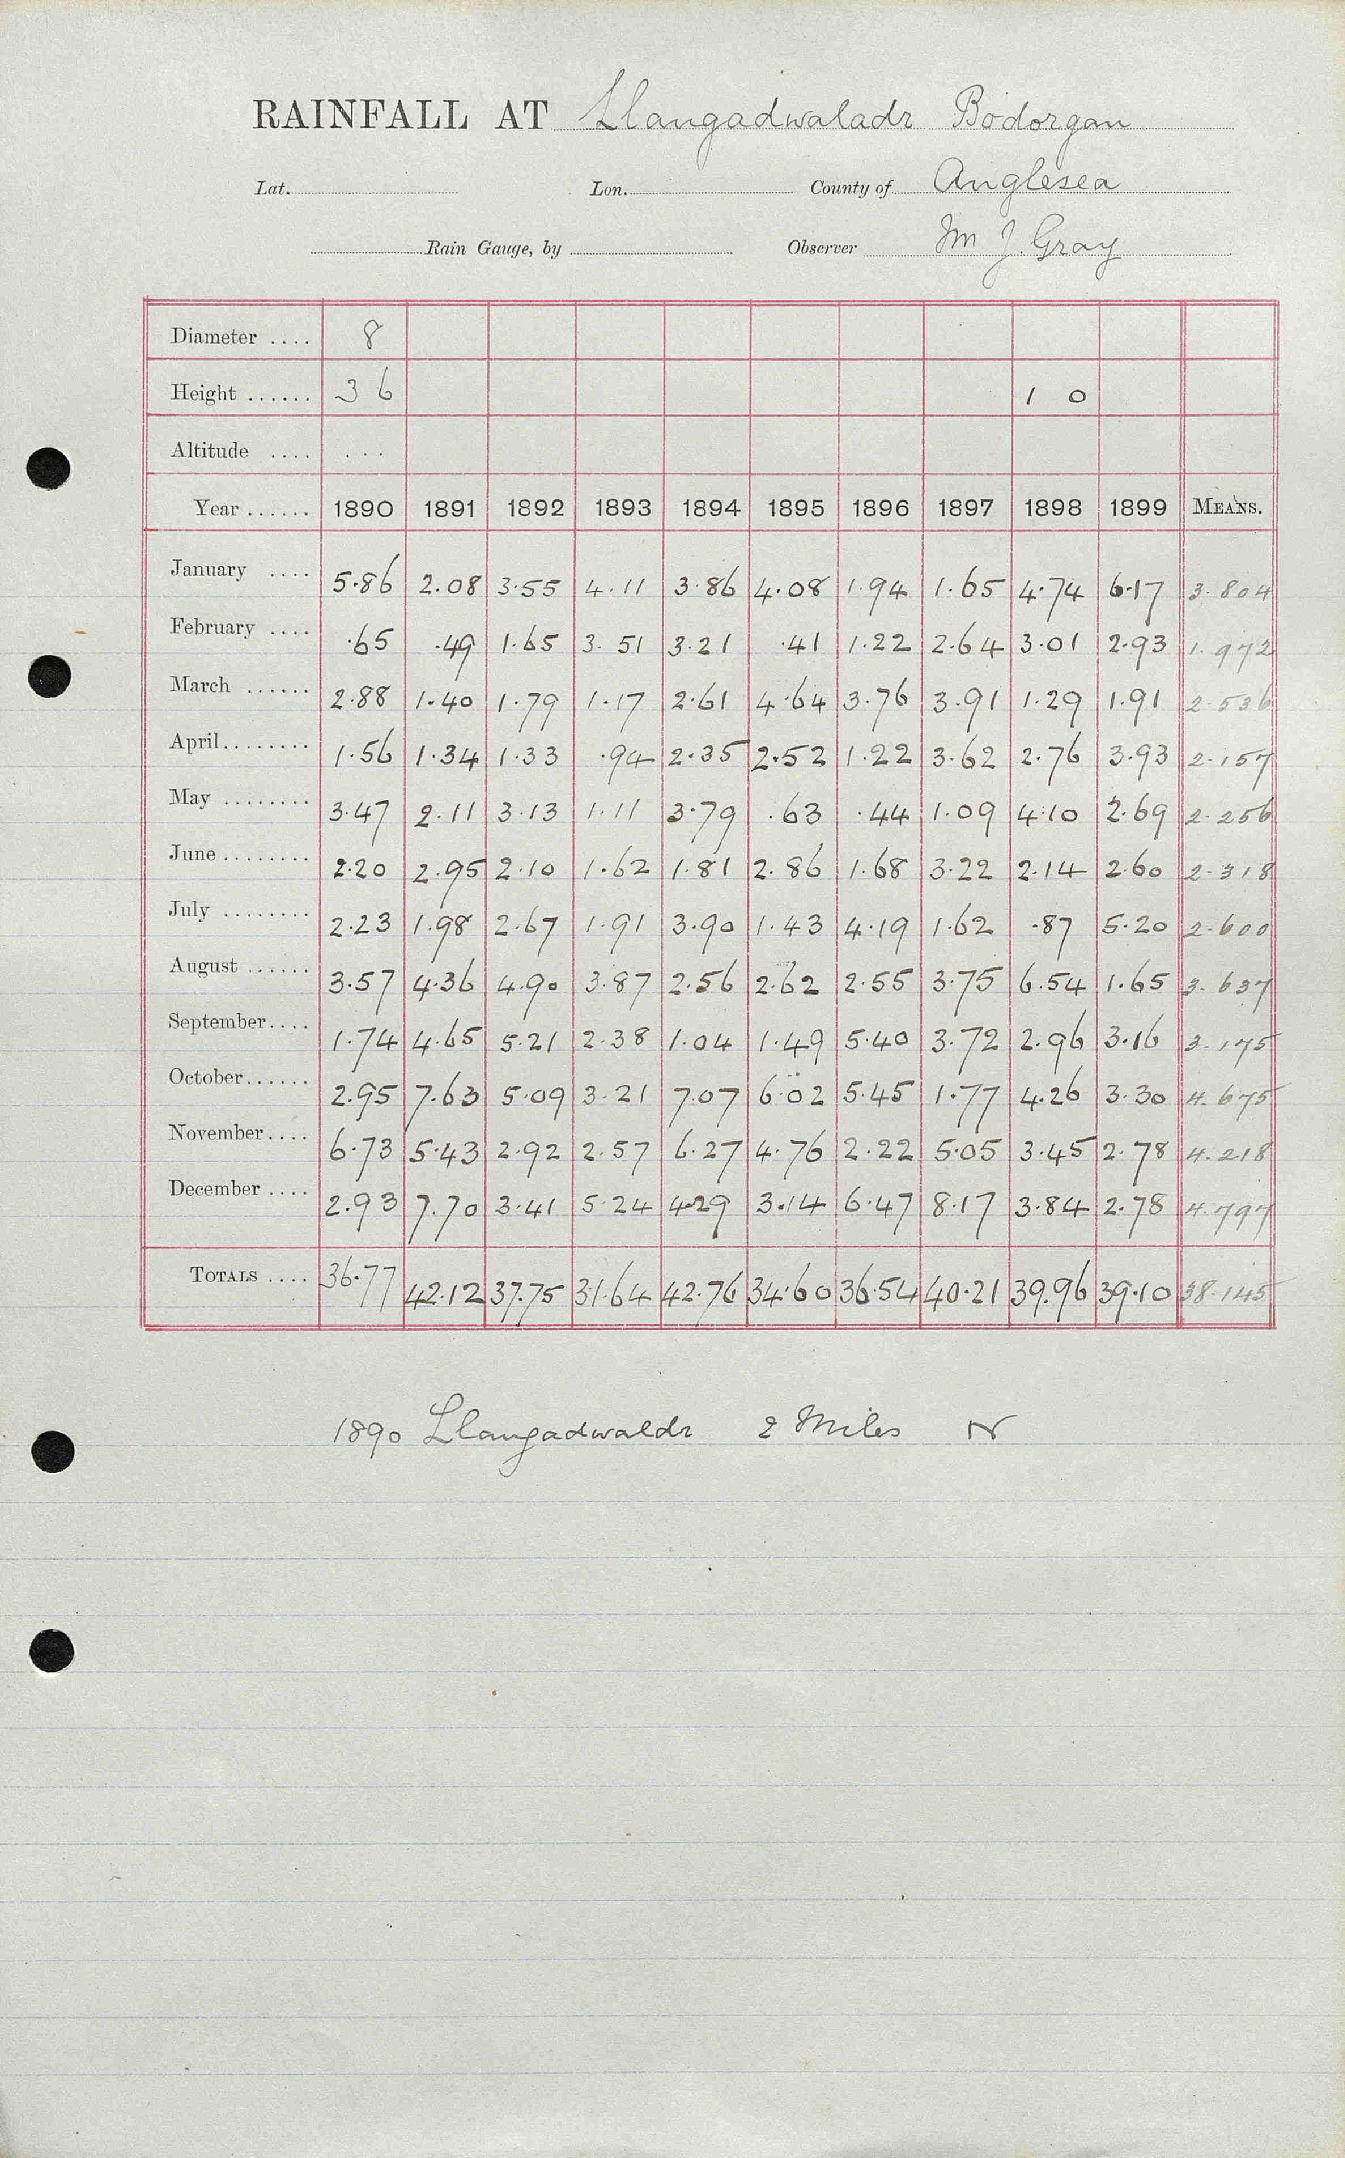 RAINFALL AT Llangadwaladr Bodorgan
Lat. Lon. County of Anglesea
Rain Gauge, by Observer Mr J. Gray
Diameter .... 8
Height ...... 3 6 1 0
Altitude .... ...
Year ...... 1890 1891 1892 1893 1894 1895 1896 1897 1898 1899 MEANS.
January .... 5.86 2.08 3.55 4.11 3.86 4.08 1.94 1.65 4.74 6.17 3.804
February .... .65 .49 1.65 3.51 3.21 .41 1.22 2.64 3.01 2.93 1.972
March ...... 2.88 1.40 1.79 1.17 2.61 4.64 3.76 3.91 1.29 1.91 2.536
April ........ 1.56 1.34 1.33 .94 2.35 2.52 1.22 3.62 2.76 3.93 2.157
May ........ 3.47 2.11 3.13 1.11 3.79 .63 .44 1.09 4.10 2.69 2.256
June ........ 2.20 2.95 2.10 1.62 1.81 2.86 1.68 3.22 2.14 2.60 2.318
July ........ 2.23 1.98 2.67 1.91 3.90 1.43 4.19 1.62 .87 5.20 2.600
August ...... 3.57 4.36 4.90 3.87 2.56 2.62 2.55 3.75 6.54 1.65 3.637
September.... 1.74 4.65 5.21 2.38 1.04 1.49 5.40 3.72 2.96 3.16 3.175
October...... 2.95 7.63 5.09 3.21 7.07 6.02 5.45 1.77 4.26 3.30 4.675
November.... 6.73 5.43 2.92 2.57 6.27 4.76 2.22 5.05 3.45 2.78 4.218
December .... 2.93 7.70 3.41 5.24 4.29 3.14 6.47 8.17 3.84 2.78 4.797
TOTALS .... 36.77 42.12 37.75 31.64 42.76 34.60 36.54 40.21 39.96 39.10 38.145
1890 Llangadwaldr 2 Miles N